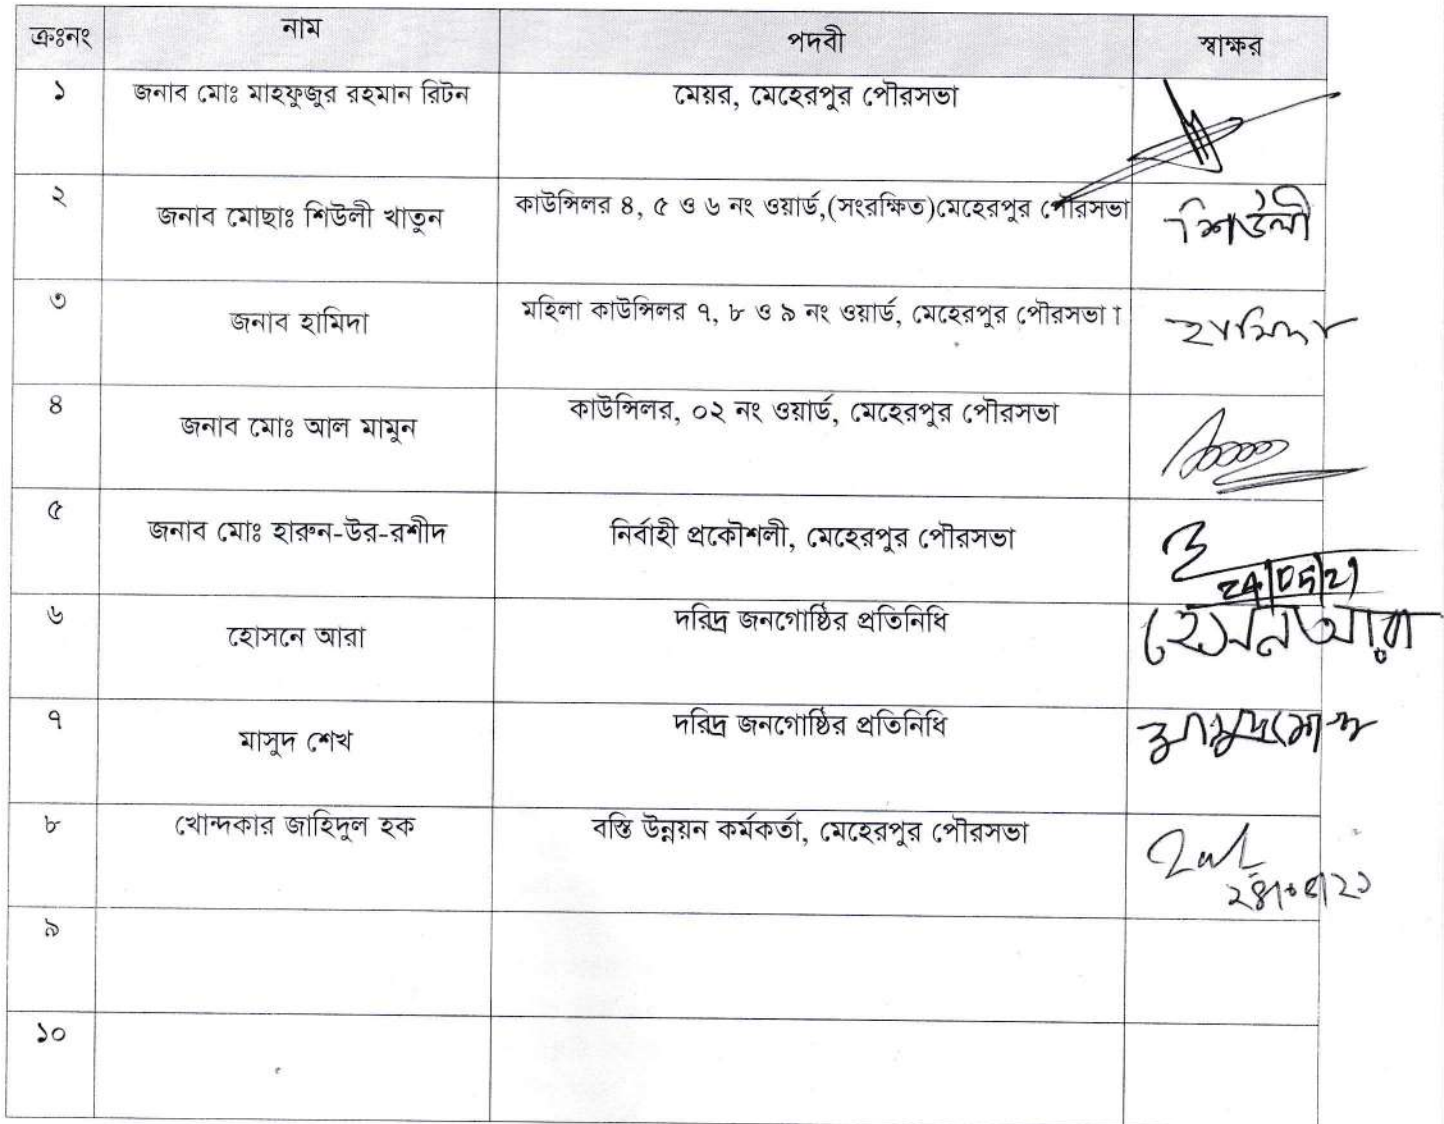 ক্রঃনং নাম পদবী স্বাক্ষর
১ জনাব মোঃ মাহফুজুর রহমান রিটন মেয়র, মেহেরপুর পৌরসভা
২ জনাব মোছাঃ শিউলী খাতুন কাউন্সিলর ৪, ৫ ও ৬ নং ওয়ার্ড,(সংরক্ষিত)মেহেরপুর পৌরসভা শিউলী
৩ জনাব হামিদা মহিলা কাউন্সিলর ৭, ৮ ও ৯ নং ওয়ার্ড, মেহেরপুর পৌরসভা । হামিদা
৪ জনাব মোঃ আল মামুন কাউন্সিলর, ০২ নং ওয়ার্ড, মেহেরপুর পৌরসভা
৫ জনাব মোঃ হারুন-উর-রশীদ নির্বাহী প্রকৌশলী, মেহেরপুর পৌরসভা 24/05/21
৬ হোসনে আরা দরিদ্র জনগোষ্ঠির প্রতিনিধি
৭ মাসুদ শেখ দরিদ্র জনগোষ্ঠির প্রতিনিধি
৮ খোন্দকার জাহিদুল হক বস্তি উন্নয়ন কর্মকর্তা, মেহেরপুর পৌরসভা
৯
১০